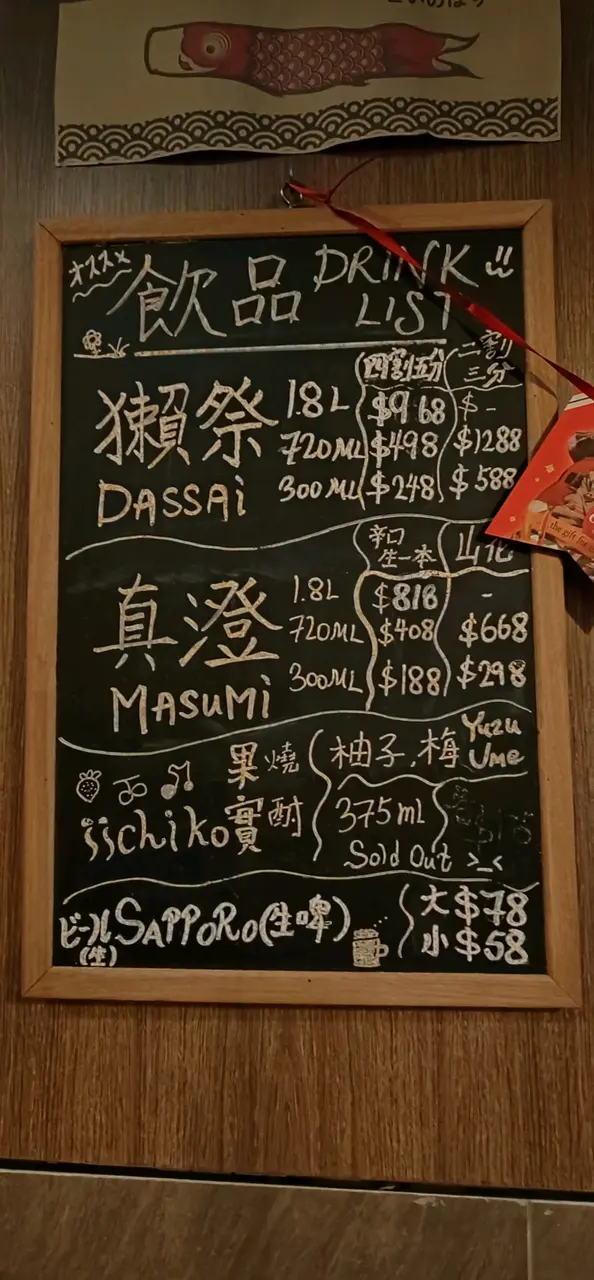 いのぼり
オススメ 飲品 DRINK LIST
四割五分 二割三分
獺祭 DASSAi
1.8L $968 $-
720ML $498 $1288
300ML $248 $588
辛口生一本 山花
真澄 MASUMi
1.8L $818 -
720ML $408 $668
300ML $188 $298
iichiko 果實 燒酎
柚子,梅 Yuzu Ume
375ml
Sold Out >_<
ビール(生) SAPPORO(生啤)
大 $78
小 $58
the gift for